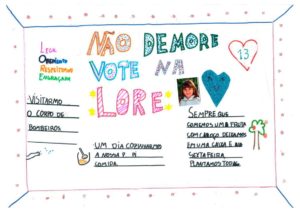 NÃO DEMORE
VOTE NA
LORE
LEGAL
OBEDIENTE
RESPEITOSA
ENGRAÇADA
13
VISITARMO
O CORPO DE
BOMBEIROS
UM DIA COZINHARMO
A NOSSA P
COMIDA
SEMPRE QUE
COMEMOS UMA FRUTA
COM CAROÇO DEIXAMOS
EM UMA CAIXA E AO
SEXTA FEIRA
PLANTAMOS TODAS